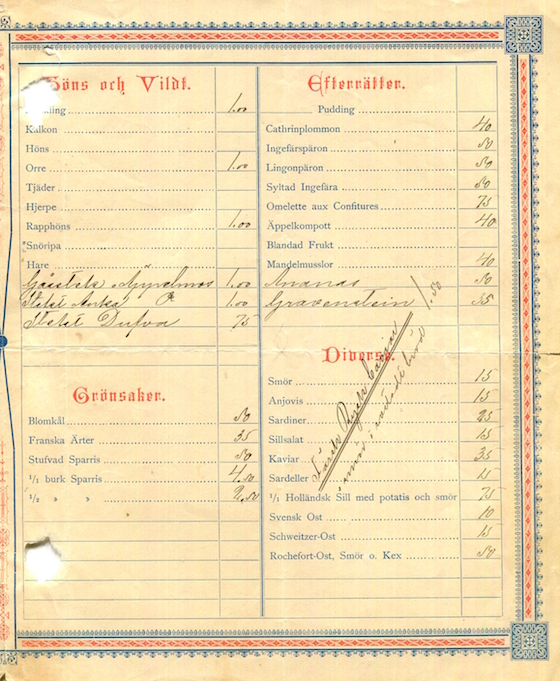 öns och Vildt.
ling 1.00
Kalkon
Höns
Orre 1.00
Tjäder
Hjerpe
Rapphöns 1.00
Snöripa
Hare
1.00
Stekt Anka 1.00
Stekt Dufva 75
Grönsaker.
Blomkål 50
Franska Ärter 35
Stufvad Sparris 50
1/1 burk Sparris 4.50
1/2 » » 2.50
Efterrätter.
Pudding
Cathrinplommon 40
Ingefärspäron 50
Lingonpäron 50
Syltad Ingefära 50
Omelette aux Confitures 75
Äppelkompott 40
Blandad Frukt
Mandelmusslor 40
Ananas 50
Gravenstein 35
Färsk Rysk Caviar 1.50
Diverse.
Smör 15
Anjovis 15
Sardiner 25
Sillsalat 15
Kaviar 35
Sardeller 15
1/1 Holländsk Sill med potatis och smör 75
Svensk Ost 10
Schweitzer-Ost 15
Rochefort-Ost, Smör o. Kex 50